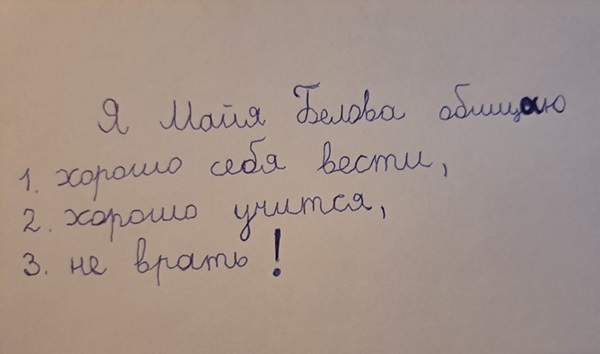 Я Майя Белова обищаю
1. хорошо себя вести,
2. хорошо учится,
3. не врать!